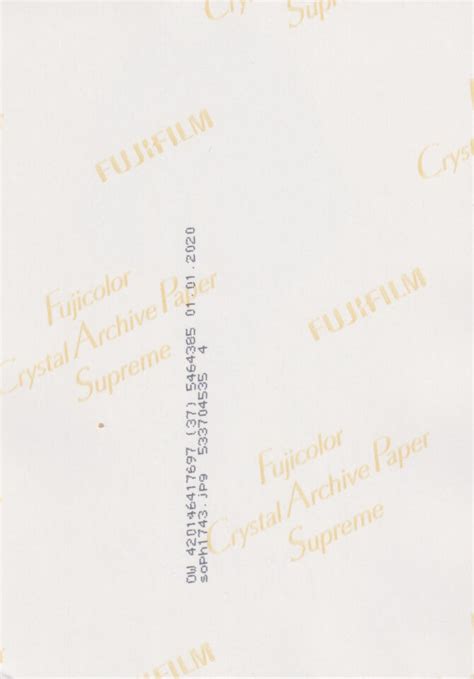 Supreme
FUJIFILM
Fujicolor
Crystal Archive Paper
Supreme
FUJIFILM
Fujicolor
Crystal Archive Paper
Supreme
FUJIFILM
OW 420146417697 (37) 5464385 01.01.2020
soph1743.jpg 533704535 4